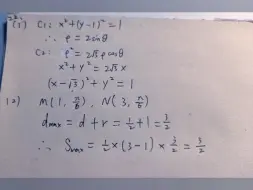 (1) C₁: x²+(y-1)²=1
∴ ρ=2sinθ
C₂: ρ²=2√3ρcosθ
x²+y²=2√3x
(x-√3)²+y²=1
(2) M(1, π/6), N(3, π/6)
dmax = d+r = 1/2+1 = 3/2
∴ Smax = 1/2×(3-1)×3/2 = 3/2